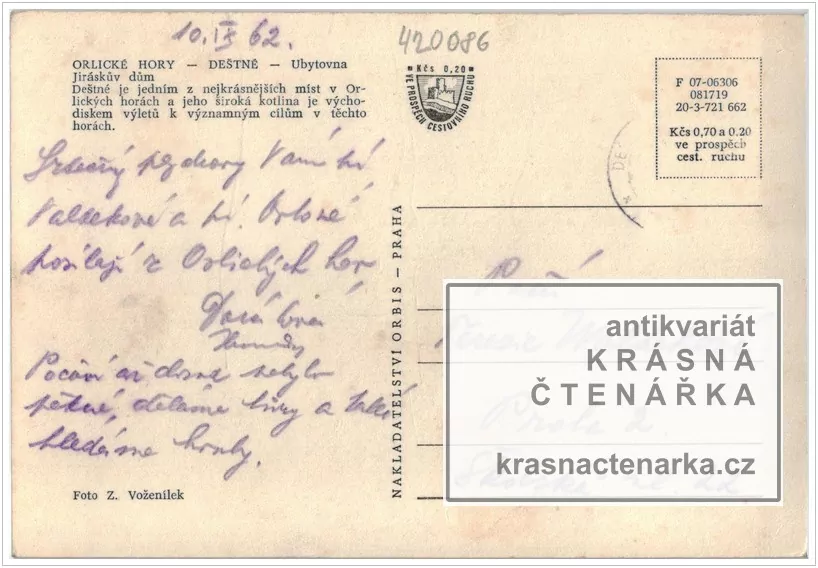 10.IX 62.
420086
ORLICKÉ HORY — DEŠTNÉ — Ubytovna
Jiráskův dům
Deštné je jedním z nejkrásnějších míst v Or-
lických horách a jeho široká kotlina je výcho-
diskem výletů k významným cílům v těchto
horách.
Kčs 0,20
VE PROSPĚCH CESTOVNÍHO RUCHU
F 07-06306
081719
20-3-721 662
Kčs 0,70 a 0.20
ve prospěch
cest. ruchu
DE
Srdečný pozdravy Vám
a
posílají z Orlických hor
Počasí až dosud nebylo
pěkné, děláme túry a také
hledáme houby.
Foto Z. Voženílek
NAKLADATELSTVÍ ORBIS — PRAHA
Praha 2
antikvariát
KRÁSNÁ
ČTENÁŘKA
krasnactenarka.cz